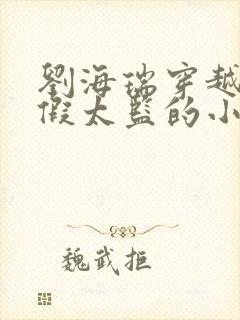 劉海瑞穿越
假太監的小
魏武拒